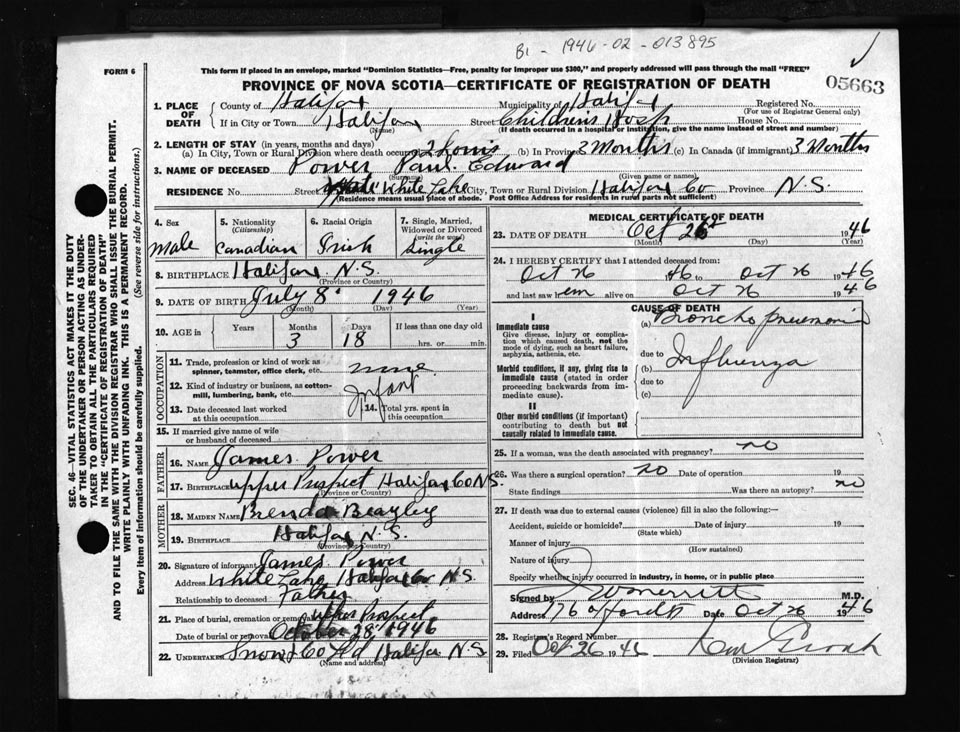 B1 - 1946-02-013895
FORM 6
This form if placed in an envelope, marked "Dominion Statistics—Free, penalty for improper use $300," and properly addressed will pass through the mail "FREE"
PROVINCE OF NOVA SCOTIA—CERTIFICATE OF REGISTRATION OF DEATH
05663
1. PLACE OF DEATH
County of Halifax Municipality of Halifax Registered No.
(For use of Registrar General only)
If in City or Town Halifax Street Childrens Hosp House No.
(Name) (If death occurred in a hospital or institution, give the name instead of street and number)
2. LENGTH OF STAY (in years, months and days)
(a) In City, Town or Rural Division where death occurred 2 hours (b) In Province 3 Months (c) In Canada (if immigrant) 3 Months
3. NAME OF DECEASED Power Paul Edward
(Surname) (Given name or names)
RESIDENCE No. Street White Lake City, Town or Rural Division Halifax Co Province N.S.
(Residence means usual place of abode. Post Office Address for residents in rural parts not sufficient)
4. Sex
male
5. Nationality
(Citizenship)
Canadian
6. Racial Origin
Irish
7. Single, Married, Widowed or Divorced
(write the word)
Single
8. BIRTHPLACE Halifax N.S.
(Province or Country)
9. DATE OF BIRTH July 8 1946
(Month) (Day) (Year)
10. AGE in
Years Months Days If less than one day old
3 18 hrs. or min.
OCCUPATION
11. Trade, profession or kind of work as spinner, teamster, office clerk, etc. none
12. Kind of industry or business, as cotton-mill, lumbering, bank, etc. Infant
13. Date deceased last worked at this occupation
14. Total yrs. spent in this occupation
15. If married give name of wife or husband of deceased
FATHER
16. Name James Power
17. Birthplace Upper Prospect Halifax Co N.S.
(Province or Country)
MOTHER
18. Maiden Name Brenda Beazley
19. Birthplace Halifax N.S.
(Province or Country)
20. Signature of informant James Power
Address White Lake Halifax Co N.S.
Relationship to deceased Father
21. Place of burial, cremation or removal Upper Prospect
Date of burial or removal October 28, 1946
22. Undertaker Snow & Co Ltd Halifax N.S.
(Name and address)
MEDICAL CERTIFICATE OF DEATH
23. DATE OF DEATH Oct 26 1946
(Month) (Day) (Year)
24. I HEREBY CERTIFY that I attended deceased from:
Oct 26 1946 to Oct 26 1946
and last saw h em alive on Oct 26 1946
CAUSE OF DEATH
I
Immediate cause
Give disease, injury or complication which caused death, not the mode of dying, such as heart failure, asphyxia, asthenia, etc.
(a) Broncho pneumonia
due to
Morbid conditions, if any, giving rise to immediate cause (stated in order proceeding backwards from immediate cause).
(b) Influenza
due to
(c)
II
Other morbid conditions (if important) contributing to death but not causally related to immediate cause.
25. If a woman, was the death associated with pregnancy? no
26. Was there a surgical operation? no Date of operation 19
State findings Was there an autopsy? no
27. If death was due to external causes (violence) fill in also the following:—
Accident, suicide or homicide? Date of injury 19
(State which)
Manner of injury
(How sustained)
Nature of injury
Specify whether injury occurred in industry, in home, or in public place
Signed by Merritt M.D.
Address 176 Oxford St Date Oct 26 1946
28. Registrar's Record Number
29. Filed Oct 26 1946
(Division Registrar)
SEC. 46—VITAL STATISTICS ACT MAKES IT THE DUTY OF THE UNDERTAKER OR PERSON ACTING AS UNDERTAKER TO OBTAIN ALL THE PARTICULARS REQUIRED IN THE "CERTIFICATE OF REGISTRATION OF DEATH" AND TO FILE THE SAME WITH THE DIVISION REGISTRAR WHO SHALL ISSUE THE BURIAL PERMIT.
WRITE PLAINLY WITH UNFADING INK. THIS IS A PERMANENT RECORD.
Every item of information should be carefully supplied. (See reverse side for instructions.)